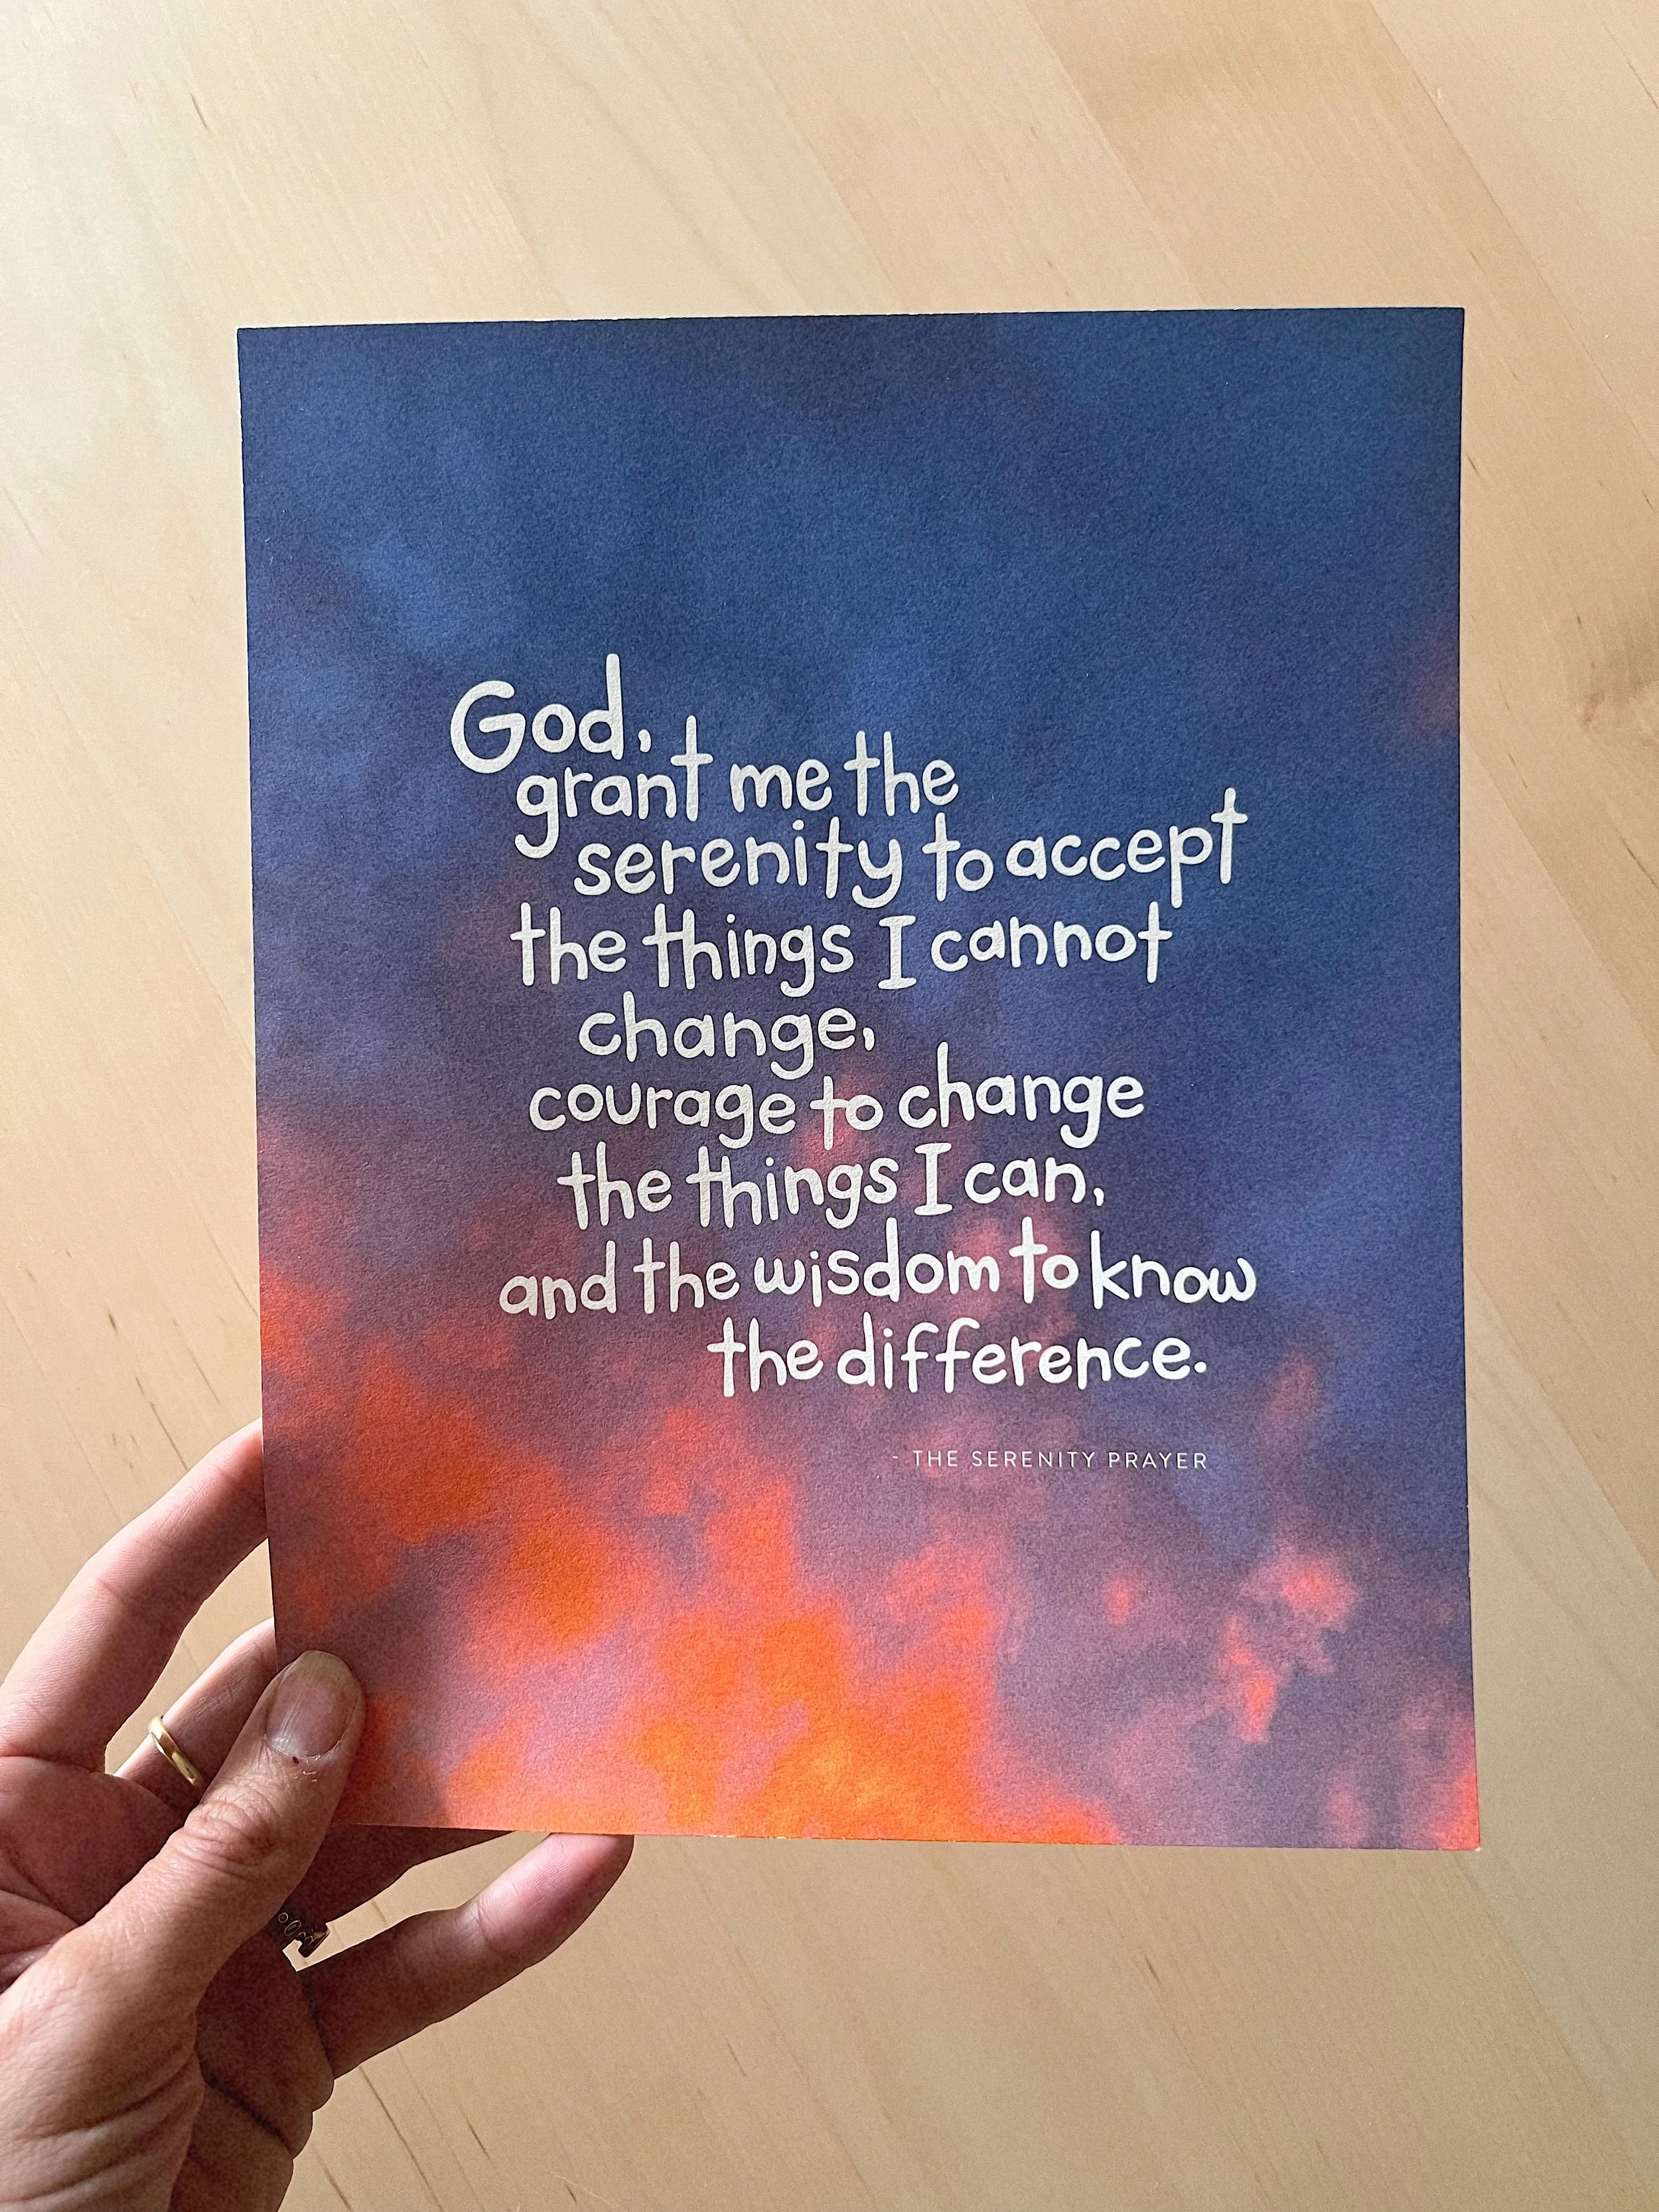 God,
grant me the
serenity to accept
the things I cannot
change,
courage to change
the things I can,
and the wisdom to know
the difference.
- THE SERENITY PRAYER